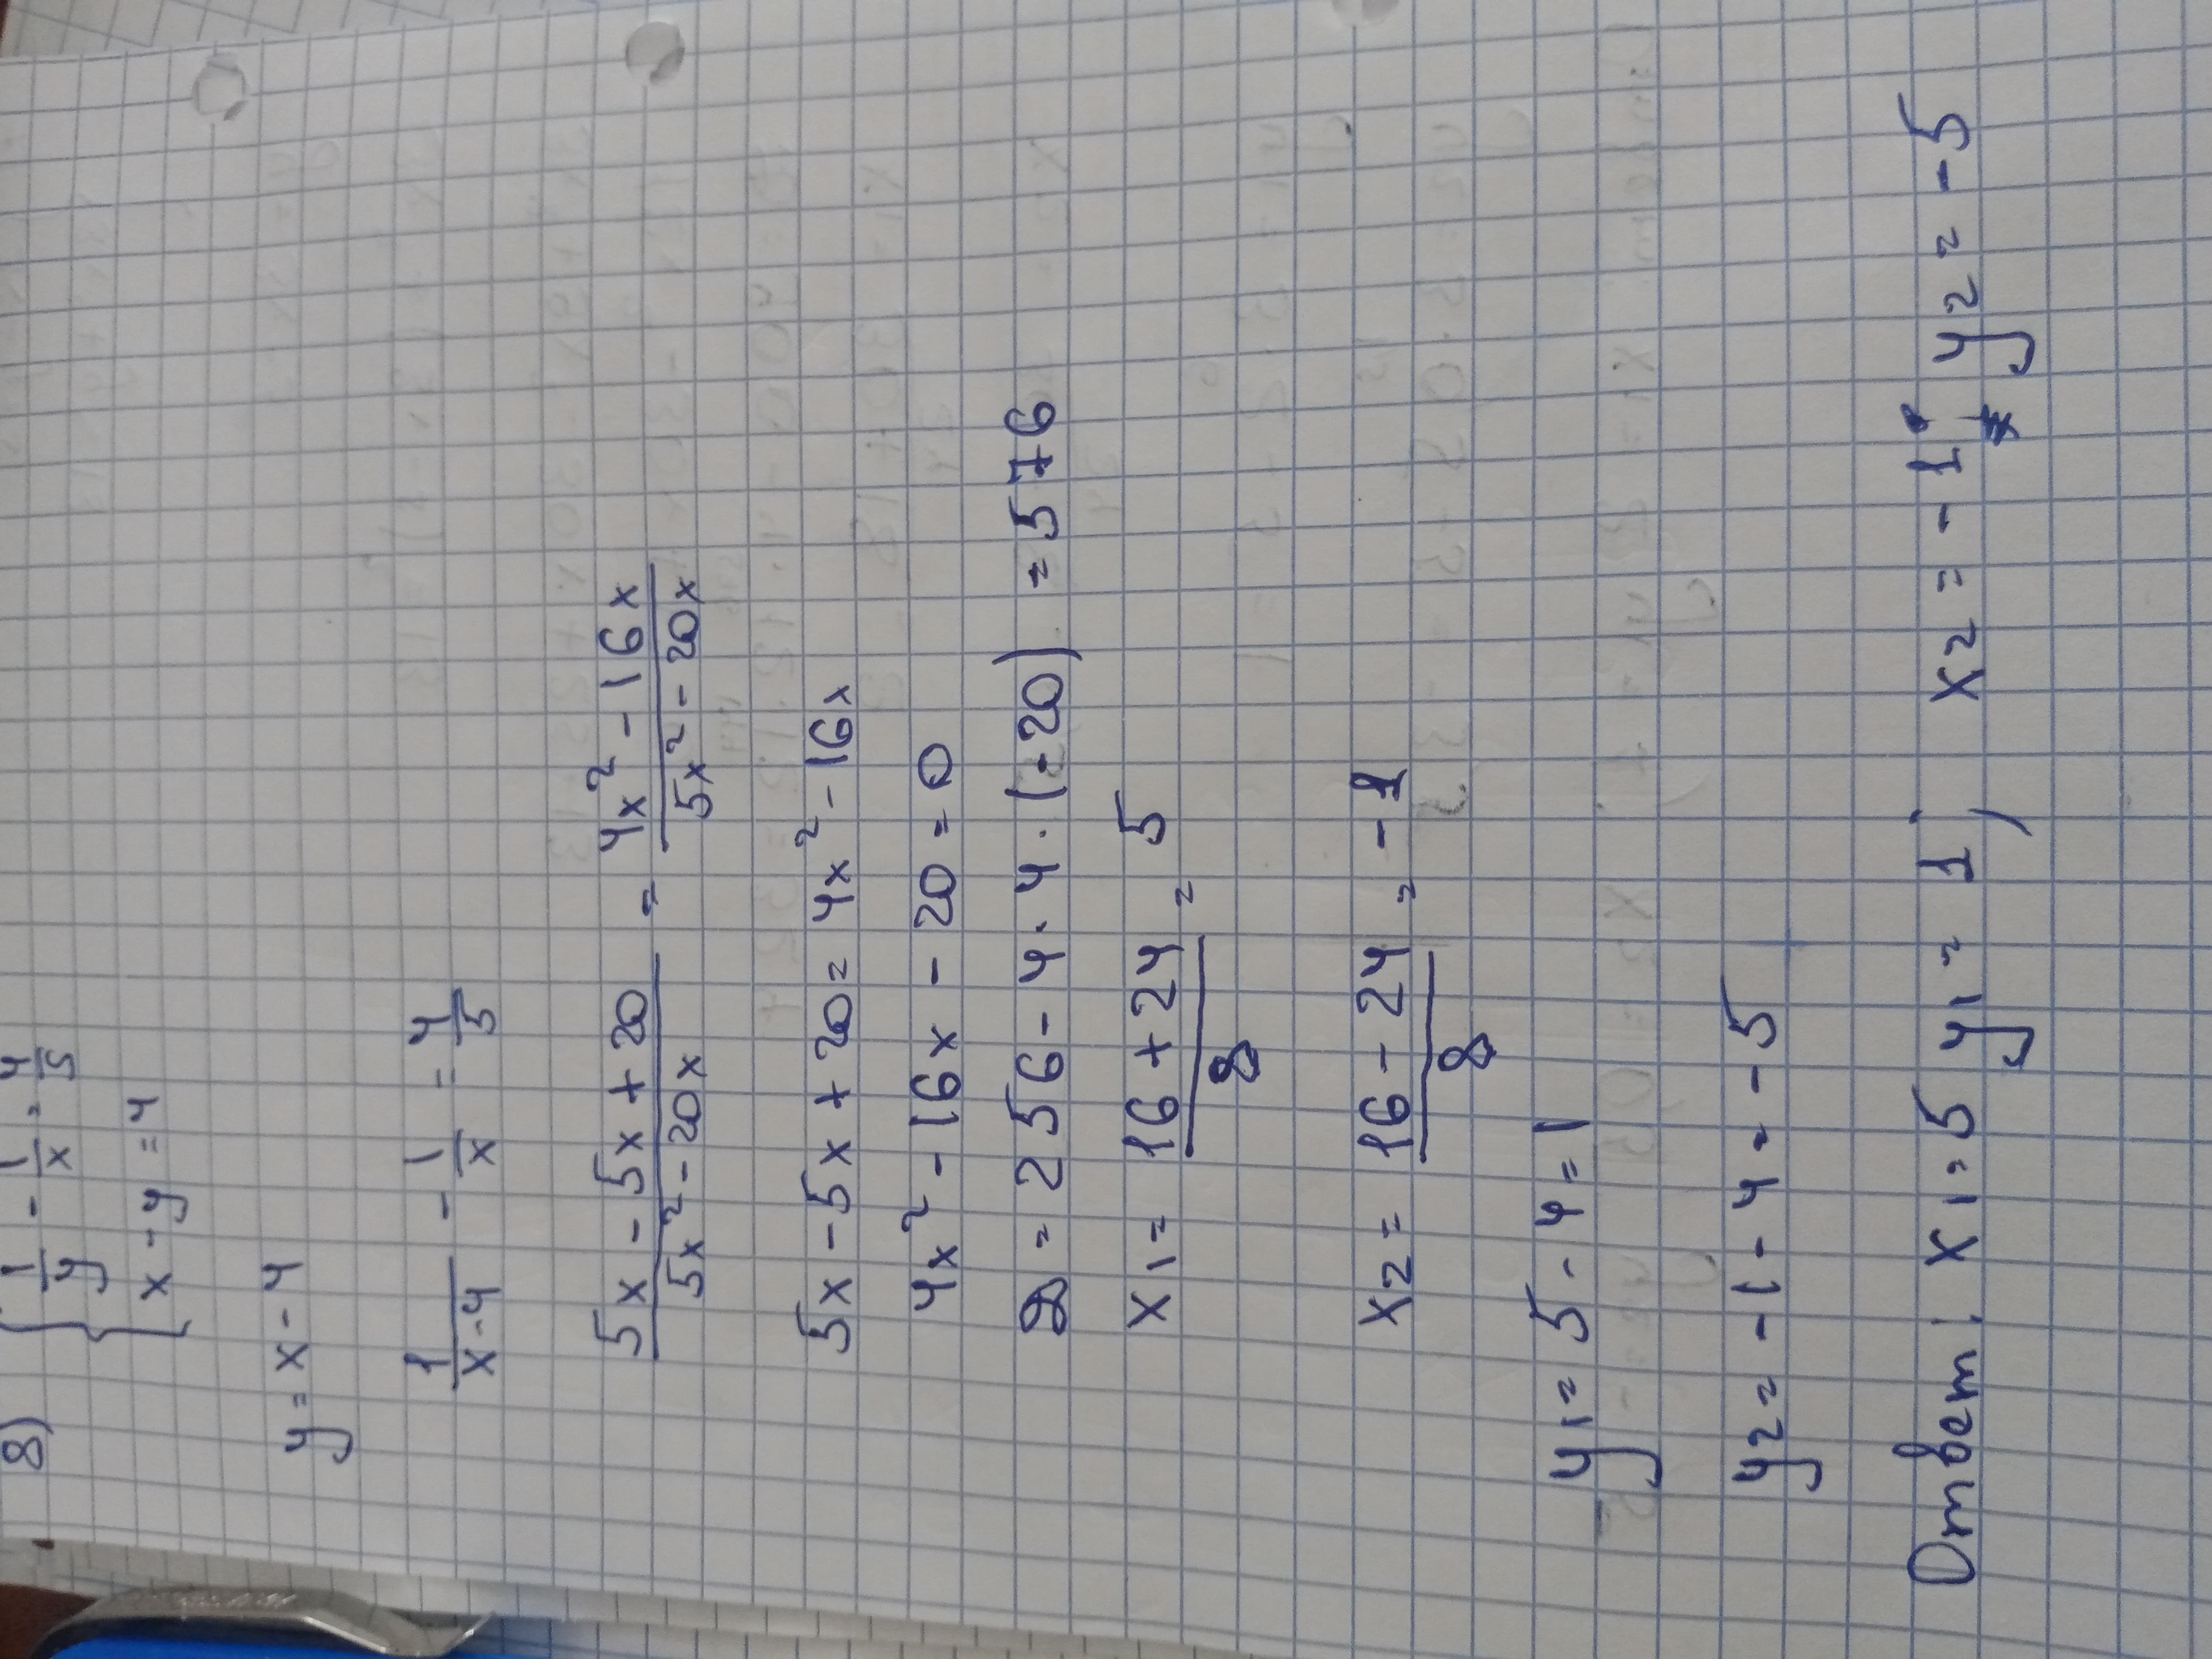 8) { 1/y - 1/x = 4/5
x - y = 4
y = x - 4
1/(x-4) - 1/x = 4/5
(5x - 5x + 20)/(5x² - 20x) = (4x² - 16x)/(5x² - 20x)
5x - 5x + 20 = 4x² - 16x
4x² - 16x - 20 = 0
D = 256 - 4 · 4 · (-20) = 576
x1 = (16 + 24)/8 = 5
x2 = (16 - 24)/8 = -1
y1 = 5 - 4 = 1
y2 = -1 - 4 = -5
Ответ: x1 = 5 y1 = 1; x2 = -1 y2 = -5